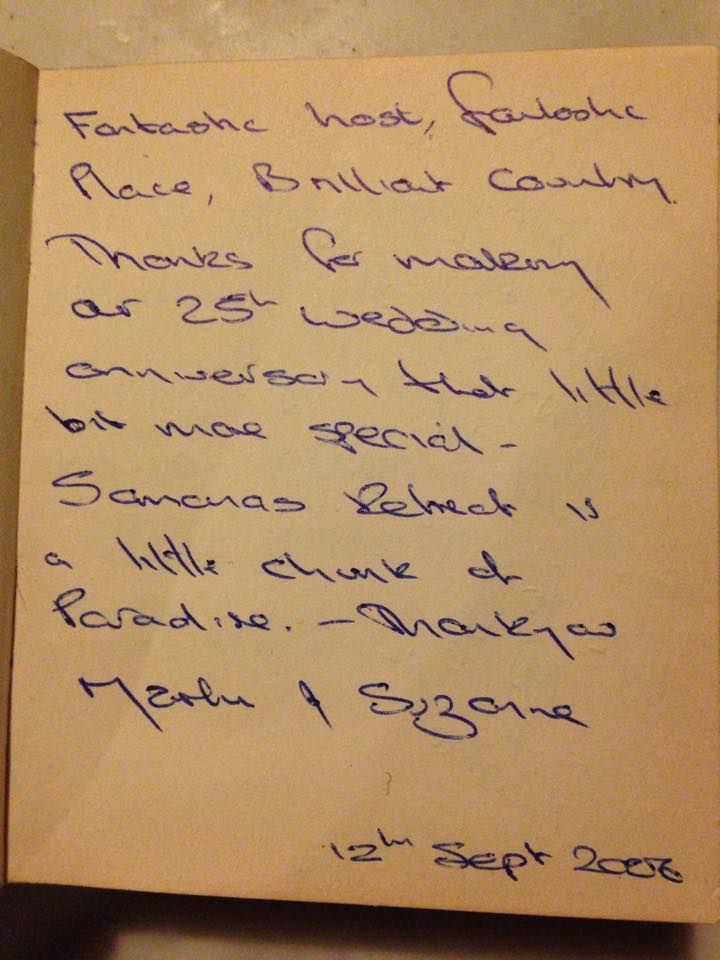 Fantastic host, fantastic
Place, Brilliant Country.
Thanks for making
our 25th wedding
anniversary that little
bit more special -
Samanas Retreat is
a little chunk of
Paradise. - Thankyou
Martin & Suzanne
12th Sept 2006